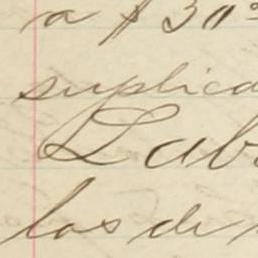 a $ 30
suplica
Lab
las de